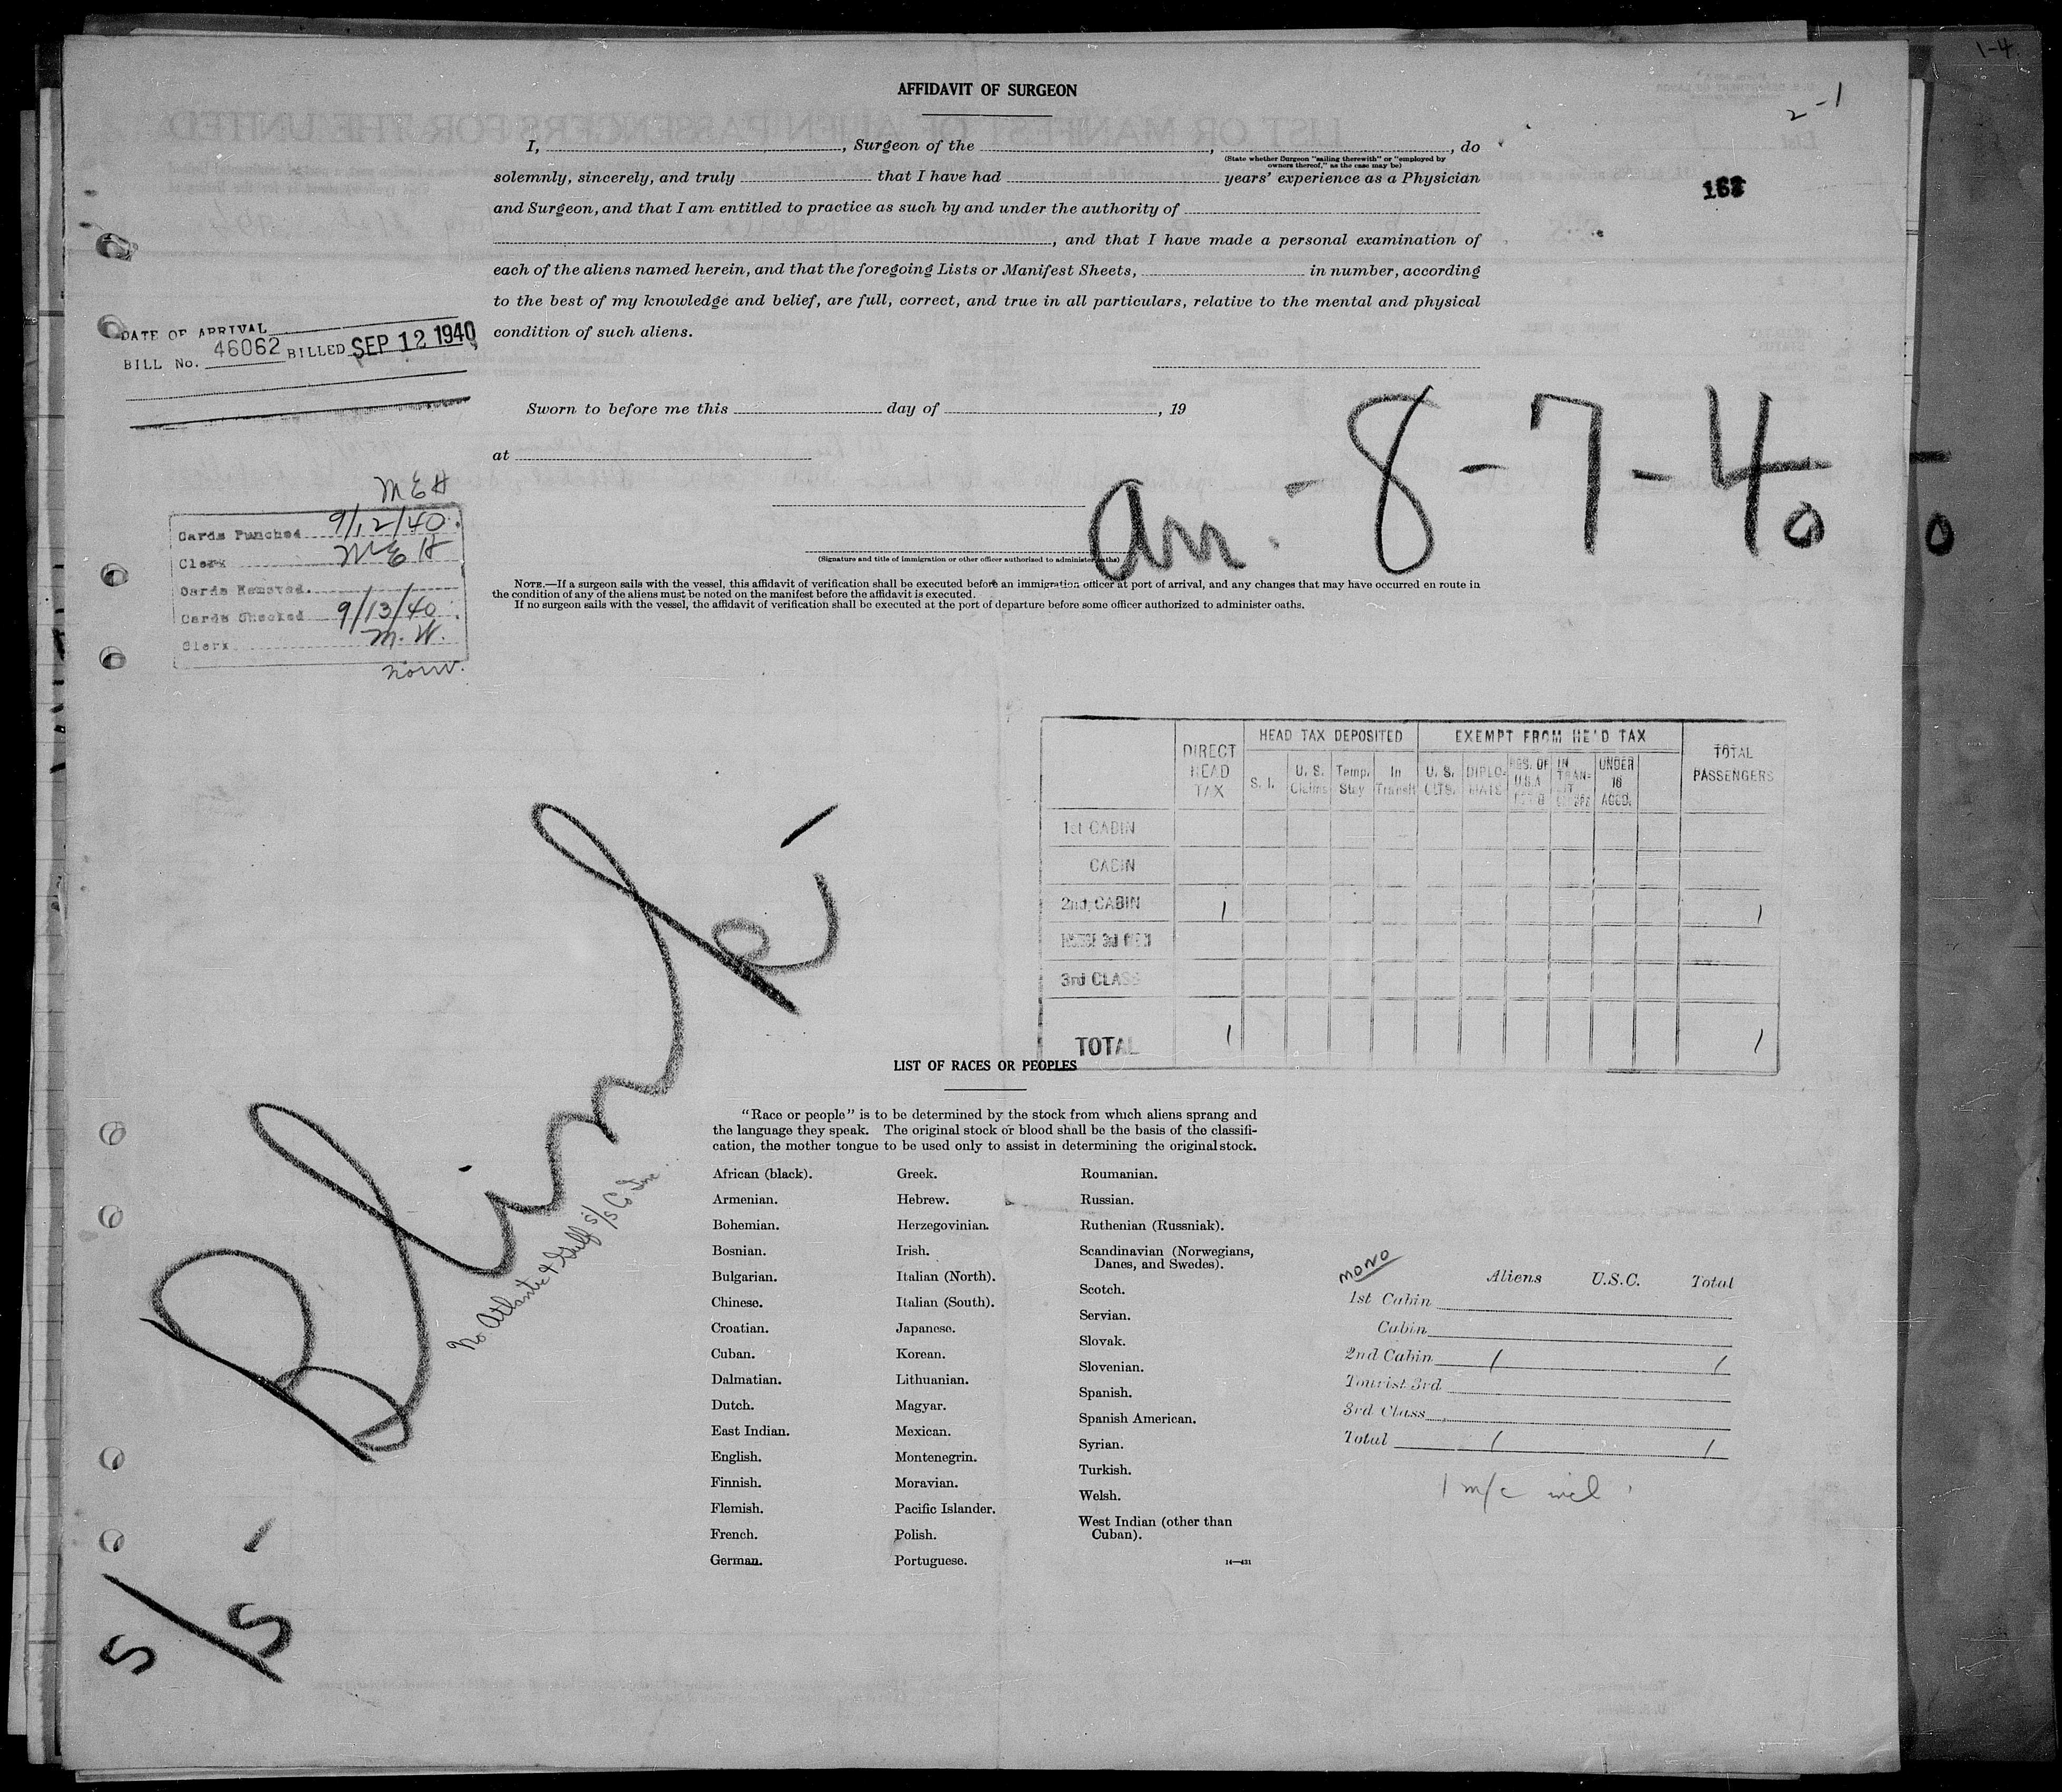 1-4
2-1
168
AFFIDAVIT OF SURGEON
I, , Surgeon of the , , do
(State whether Surgeon "sailing therewith" or "employed by
owners thereof," as the case may be)
solemnly, sincerely, and truly that I have had years' experience as a Physician
and Surgeon, and that I am entitled to practice as such by and under the authority of
, and that I have made a personal examination of
each of the aliens named herein, and that the foregoing Lists or Manifest Sheets, in number, according
to the best of my knowledge and belief, are full, correct, and true in all particulars, relative to the mental and physical
condition of such aliens.
DATE OF ARRIVAL
BILL No. 46062 BILLED SEP 12 1940
Sworn to before me this day of , 19
at
arr. - 8 - 7 - 40
(Signature and title of immigration or other officer authorized to administer oaths)
NOTE.—If a surgeon sails with the vessel, this affidavit of verification shall be executed before an immigration officer at port of arrival, and any changes that may have occurred en route in
the condition of any of the aliens must be noted on the manifest before the affidavit is executed.
If no surgeon sails with the vessel, the affidavit of verification shall be executed at the port of departure before some officer authorized to administer oaths.
MEH
Cards Punched 9/12/40
Clerk MEH
Cards Checked 9/13/40
Clerk M.W.
norw.
DIRECT HEAD TAX
HEAD TAX DEPOSITED
S. I.
U. S. Claims
Temp. Stay
In Transit
EXEMPT FROM HEAD TAX
U. S. CITS.
DIPLO-MATS
RES. OF U.S.A
IN TRAN-SIT
UNDER 16 ACCD.
TOTAL PASSENGERS
1st CABIN
CABIN
2nd CABIN 1 1
3rd CLASS
TOTAL 1 1
S/S - Blink -
No. Atlantic & Gulf S/S Co Inc
LIST OF RACES OR PEOPLES
"Race or people" is to be determined by the stock from which aliens sprang and
the language they speak. The original stock or blood shall be the basis of the classifi-
cation, the mother tongue to be used only to assist in determining the original stock.
African (black).
Armenian.
Bohemian.
Bosnian.
Bulgarian.
Chinese.
Croatian.
Cuban.
Dalmatian.
Dutch.
East Indian.
English.
Finnish.
Flemish.
French.
German.
Greek.
Hebrew.
Herzegovinian.
Irish.
Italian (North).
Italian (South).
Japanese.
Korean.
Lithuanian.
Magyar.
Mexican.
Montenegrin.
Moravian.
Pacific Islander.
Polish.
Portuguese.
Roumanian.
Russian.
Ruthenian (Russniak).
Scandinavian (Norwegians,
Danes, and Swedes).
Scotch.
Servian.
Slovak.
Slovenian.
Spanish.
Spanish American.
Syrian.
Turkish.
Welsh.
West Indian (other than
Cuban).
14—431
MONO
Aliens U.S.C. Total
1st Cabin
Cabin
2nd Cabin 1 1
Tourist 3rd
3rd Class
Total 1 1
1 m/c incl